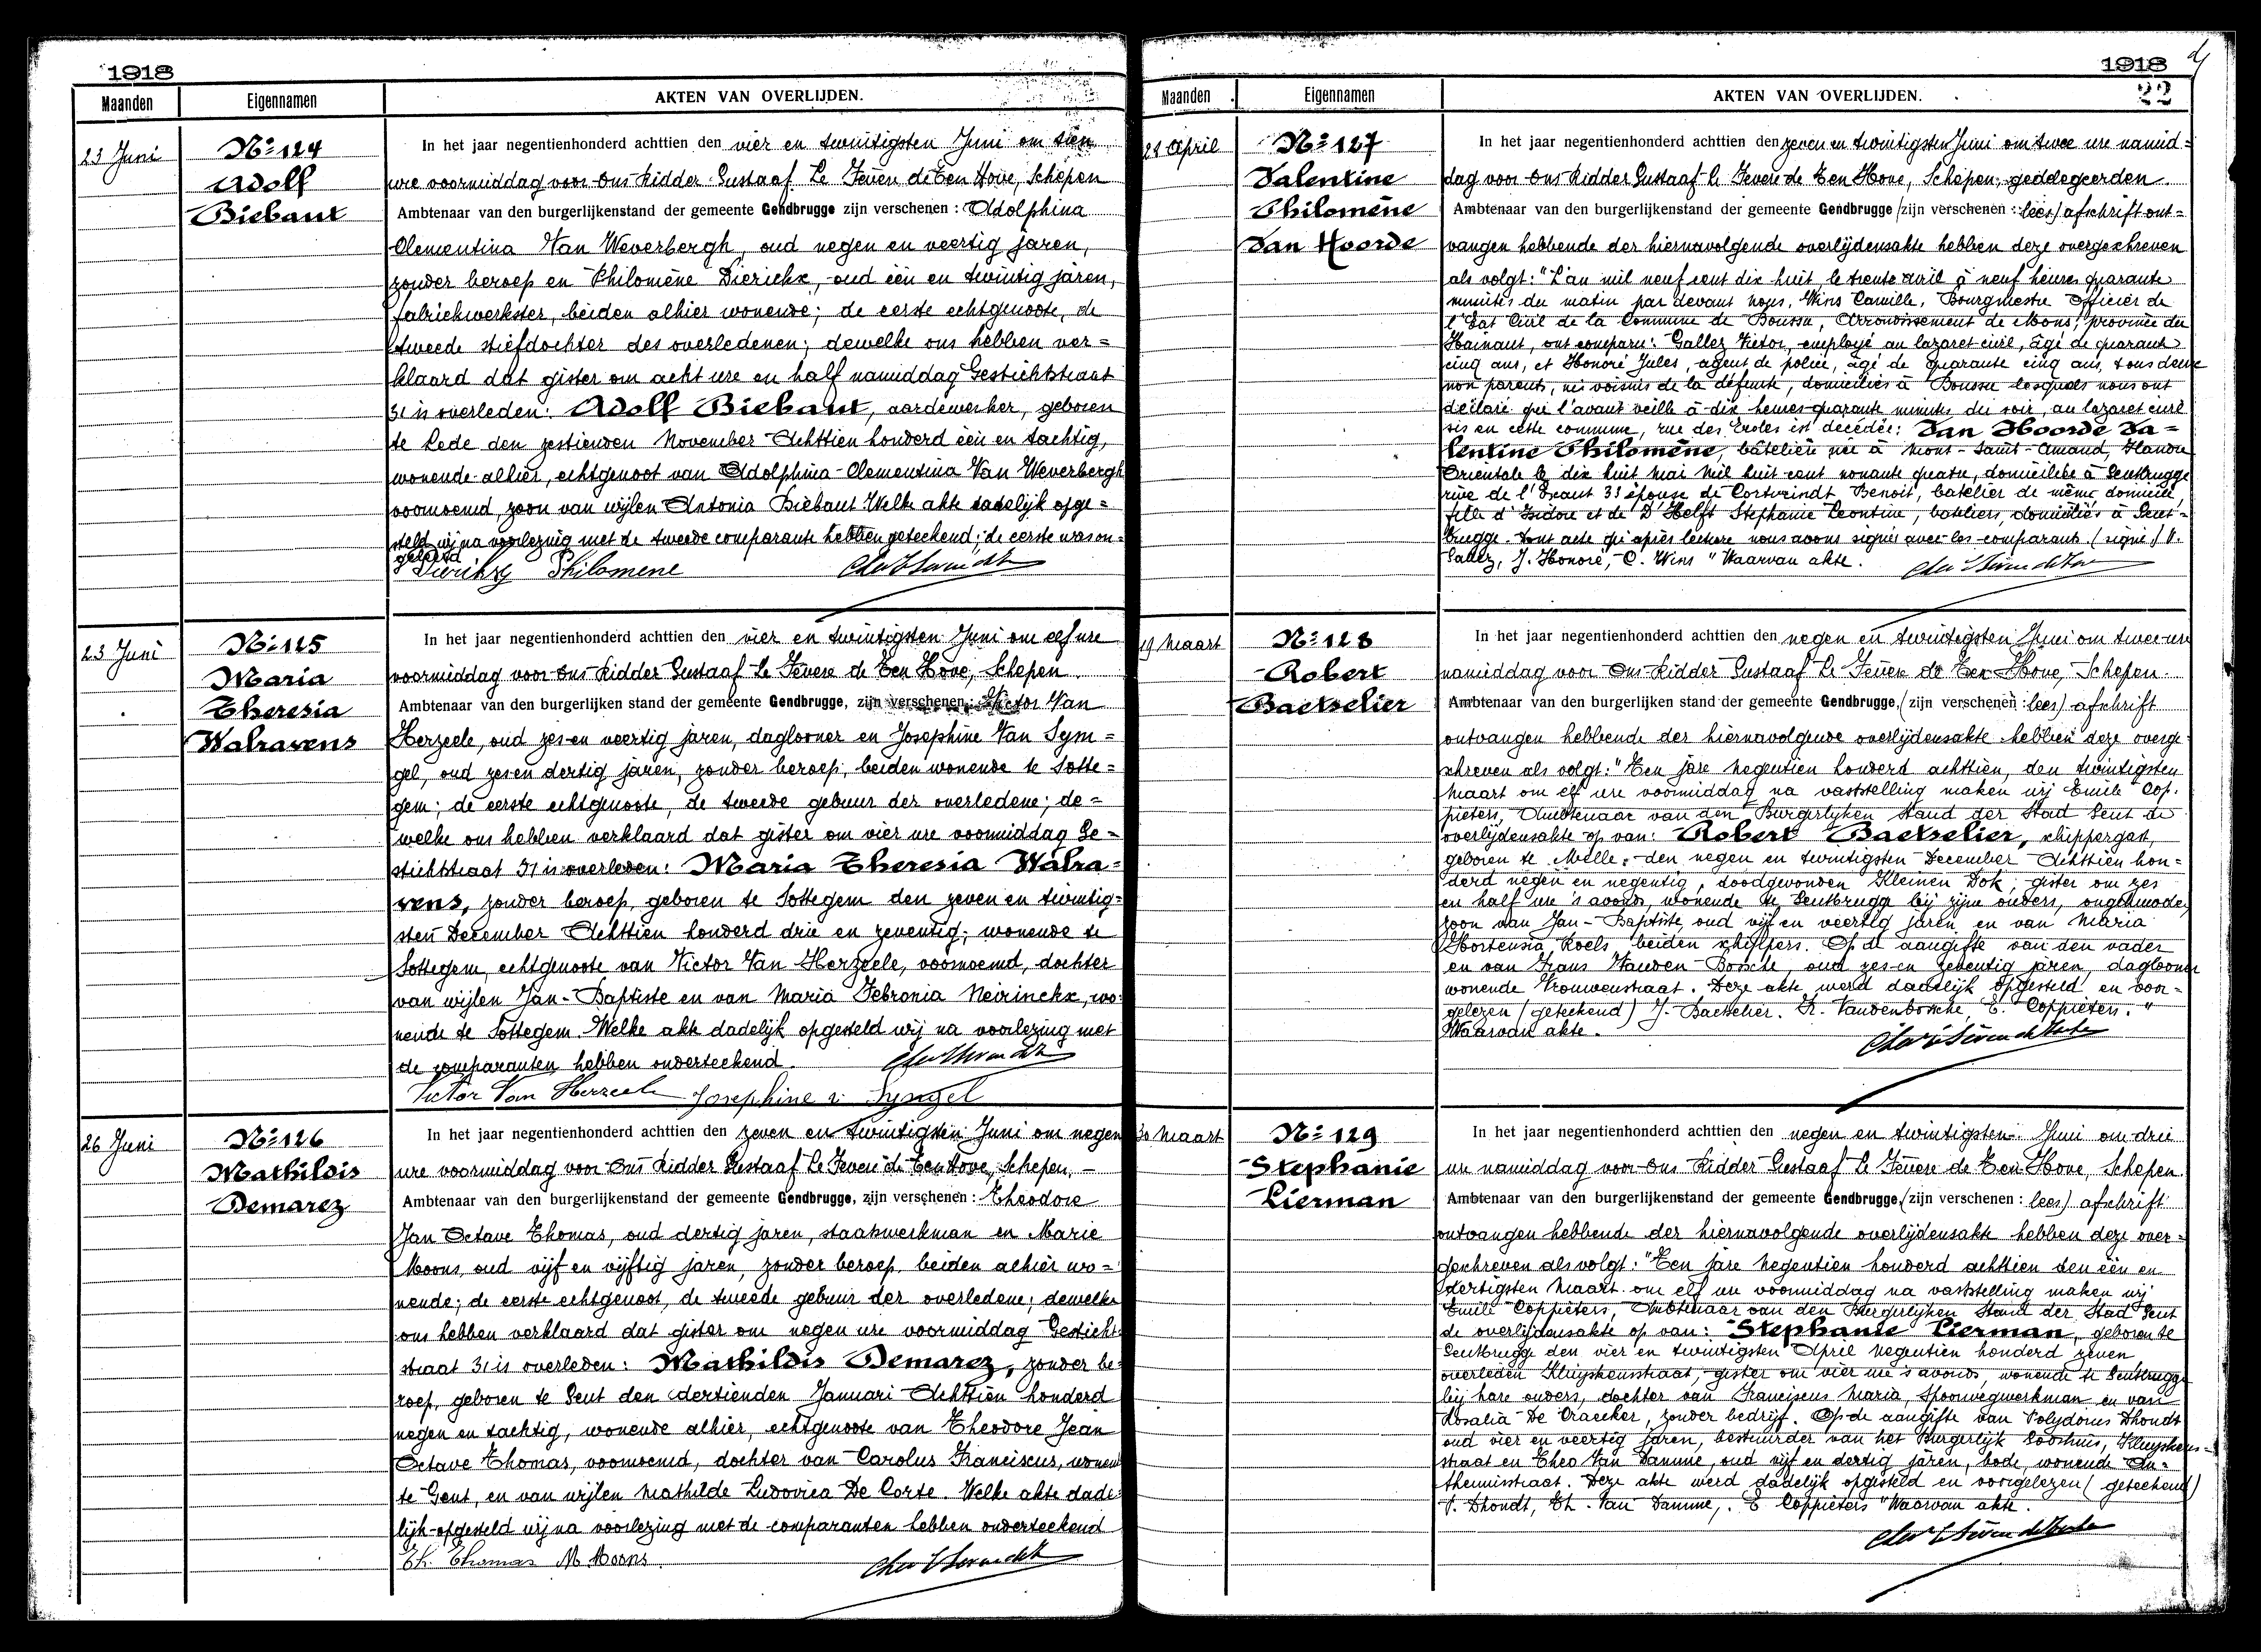 1918
Maanden
Eigennamen
AKTEN VAN OVERLIJDEN.
23 Juni
Nº 124
Adolf
Biebaut
In het jaar negentienhonderd achttien den vier en twintigsten Juni om tien
ure voormiddag voor Ons Ridder Gustaaf Le Fevere de Ten Hove, Schepen
Ambtenaar van den burgerlijkenstand der gemeente Gendbrugge zijn verschenen : Adolphina
Clementina Van Weverbergh, oud negen en veertig jaren,
zonder beroep en Philomène Dierickx, oud één en twintig jaren,
fabriekwerkster, beiden alhier wonende; de eerste echtgenoote, de
tweede stiefdochter des overledenen; dewelke ons hebben ver=
klaard dat gister om acht ure en half namiddag Gestichtstraat
31 is overleden: Adolf Biebaut, aardewerker, geboren
te Lede den zestienden November Achttien honderd één en tachtig,
wonende alhier, echtgenoot van Adolphina-Clementina Van Weverbergh
voornoemd, zoon van wijlen Antonia Biebaut Welke akte dadelijk opge=
steld wij na voorlezing met de tweede comparante hebben geteekend; de eerste was on=
geleerd
Dierickx Philomene
23 Juni
Nº 125
Maria
Theresia
Walravens
In het jaar negentienhonderd achttien den vier en twintigsten Juni om elf ure
voormiddag voor Ons Ridder Gustaaf Le Fevere de Ten Hove, Schepen
Ambtenaar van den burgerlijken stand der gemeente Gendbrugge, zijn verschenen : Victor Van
Herzeele, oud zes en veertig jaren, daglooner en Josephine Van Syn=
gel, oud zes en dertig jaren, zonder beroep, beiden wonende te Sotte=
gem; de eerste echtgenoote, de tweede gebuur der overledene; de=
welke ons hebben verklaard dat gister om vier ure voormiddag Ge=
stichtstraat 31 is overleden: Maria Theresia Walra=
vens, zonder beroep, geboren te Sottegem den zeven en twintig=
sten December Achttien honderd drie en zeventig, wonende te
Sottegem, echtgenoote van Victor Van Herzeele, voornoemd, dochter
van wijlen Jan-Baptiste en van Maria Febronia Neirinckx, wo=
nende te Sottegem Welke akte dadelijk opgesteld wij na voorlezing met
de comparanten, hebben onderteekend.
Victor Van Herzeele Josephine v. Syngel
26 Juni
Nº 126
Mathildis
Demarez
In het jaar negentienhonderd achttien den zeven en twintigsten Juni om negen
ure voormiddag voor Ons Ridder Gustaaf Le Fevere de Ten Hove, Schepen, —
Ambtenaar van den burgerlijkenstand der gemeente Gendbrugge, zijn verschenen : Theodore
Jan Octave Thomas, oud dertig jaren, staatswerkman en Marie
Moons, oud vijf en vijftig jaren, zonder beroep, beiden alhier wo=
nende; de eerste echtgenoot, de tweede gebuur der overledene; dewelke
ons hebben verklaard dat gister om negen ure voormiddag Gesticht
straat 31 is overleden: Mathildis Demarez, zonder be=
roep, geboren te Gent den dertienden Januari Achttien honderd
negen en tachtig, wonende alhier, echtgenoote van Theodore Jean
Octave Thomas, voornoemd, dochter van Carolus Franciscus, wonend
te Gent, en van wijlen Mathilde Ludovica De Corte. Welke akte dade=
lijk opgesteld wij na voorlezing met de comparanten hebben onderteekend
Th. Thomas M Moons
1918
22
Maanden
Eigennamen
AKTEN VAN OVERLIJDEN.
28 April
Nº 127
Valentine
Philomène
Van Hoorde
In het jaar negentienhonderd achttien den zeven en twintigsten Juni om twee ure namid=
dag voor Ons Ridder Gustaaf Le Fevere de Ten Hove, Schepen, geddegeerden
Ambtenaar van den burgerlijkenstand der gemeente Gendbrugge (zijn verschenen : lees) afschrift ont=
vangen hebbende der hiernavolgende overlijdensakte hebben deze overgeschreven
als volgt: "L'an mil neuf cent dix huit, le trente avril à neuf heures quarante
minutes du matin par devant nous, Wins Camille, Bourgmestre Officier de
l'Etat Civil de la Commune de Boussu, Arrondissement de Mons, province du
Hainaut, ont comparu: Gallez Victor, employé au lazaret civil, âgé de quarante
cinq ans, et Honoré Jules, agent de police, âgé de quarante cinq ans, tous deux
non parents, ni voisins de la défunte, domiciliés à Boussu lesquels nous ont
déclaré que l'avant veille à dix heures quarante minutes du soir, au lazaret civil
sis en cette commune, rue des Ecoles est décédée: Van Hoorde Va=
lentine Philomène, batelière née à Mont-Saint-Amand, Flandre
Orientale le dix huit Mai Mil huit cent nonante quatre, domiciliée à Gentbrugge
rue de l'Escaut 33 épouse de Cortvrindt Benoit, batelier de même domicile,
fille d'Isidore et de D'Helft Stephanie Leontine, bateliers, domiciliés à Gent-
brugge. Dont acte qu'après lecture nous avons signé avec les comparants. (signé) V.
Gallez, J. Honoré, C. Wins" Waarvan akte.
19 Maart
Nº 128
Robert
Baetselier
In het jaar negentienhonderd achttien den negen en twintigsten Juni om twee ure
namiddag voor Ons Ridder Gustaaf Le Fevere de Ten Hove, Schepen.
Ambtenaar van den burgerlijken stand der gemeente Gendbrugge, (zijn verschenen : lees) afschrift
ontvangen hebbende der hiernavolgende overlijdensakte hebben deze overge
schreven als volgt: "Ten jare Negentien honderd achttien, den twintigsten
Maart om elf ure voormiddag na vaststelling maken wij Emile Cop.
pieters, Ambtenaar van den Burgerlyken Stand der Stad Gent de
overlijdensakte op van: Robert Baetselier, schippergast,
geboren te Melle, den negen en twintigsten December Achttien hon=
derd negen en negentig, doodgevonden Kleinen Dok, gister om zes
en half ure 's avonds, wonende te Gentbrugge bij zijne ouders, ongehuwde,
zoon van Jan-Baptiste, oud vijf en veertig jaren en van Maria
Hortensia Roels, beiden schippers. Op de aangifte van den vader
en van Frans Vanden Bosche, oud zes en zeventig jaren, daglooner
wonende Vrouwenstraat. Deze akte werd dadelijk opgesteld en voor-
gelezen (geteekend) J. Baetselier. Fr. Vandenbosche, E. Coppieters."
Waarvan akte.
30 Maart
Nº 129
Stephanie
Lierman
In het jaar negentienhonderd achttien den negen en twintigsten Juni om drie
ure namiddag voor Ons Ridder Gustaaf Le Fevere de Ten Hove, Schepen.
Ambtenaar van den burgerlijkenstand der gemeente Gendbrugge, (zijn verschenen : lees) afschrift
ontvangen hebbende der hiernavolgende overlijdensakte hebben deze over=
geschreven als volgt: "Ten jare Negentien honderd achttien den één en
dertigsten Maart om elf ure voormiddag na vaststelling maken wij
Emile Coppieters, Ambtenaar van den Burgerlyken Stand der Stad Gent
de overlijdensakte op van: Stephanie Lierman, geboren te
Gentbrugge den vier en twintigsten April Negentien honderd zeven
overleden Kluyskensstraat, gister om vier ure 's avonds, wonende te Gentbrugge
bij hare ouders, dochter van Franciscus Maria, spoorwegwerkman en van
Rosalia De Craecker, zonder bedrijf. Op de aangifte van Polydorus Dhondt
oud vier en veertig jaren, bestuurder van het Burgerlyk Godshuis, Kluyskens=
straat en Theo Van Damme, oud vijf en dertig jaren, bode, wonende An=
theunisstraat. Deze akte werd dadelijk opgesteld en voorgelezen (geteekend)
P. Dhondt, Th. Van Damme, E Coppieters" Waarvan akte.